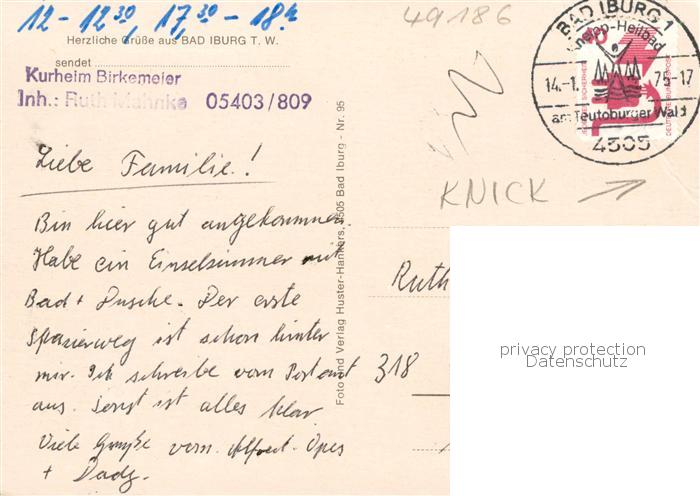 12-12³⁰, 17,³⁰ - 18.h
Herzliche Grüße aus BAD IBURG T. W.
sendet
Kurheim Birkemeier
Inh.: Ruth Mahnke 05403/809
49186
BAD IBURG 1
Kneipp-Heilbad
14.-1. 75-17
am Teutoburger Wald
4505
DEUTSCHE BUNDESPOST
KNICK
Liebe Familie!
Bin hier gut angekommen.
Habe ein Einselzimmer mit
Bad + Dusche. Der erste
Spazierweg ist schon hinter
mir. Ich schreibe vom Postamt
aus. Sonst ist alles klar
Viele Grüße vom. Alfred. Opes
+ Dadz.
Foto und Verlag Huster-Hankers, 4505 Bad Iburg - Nr. 95
Ruth
318
privacy protection
Datenschutz